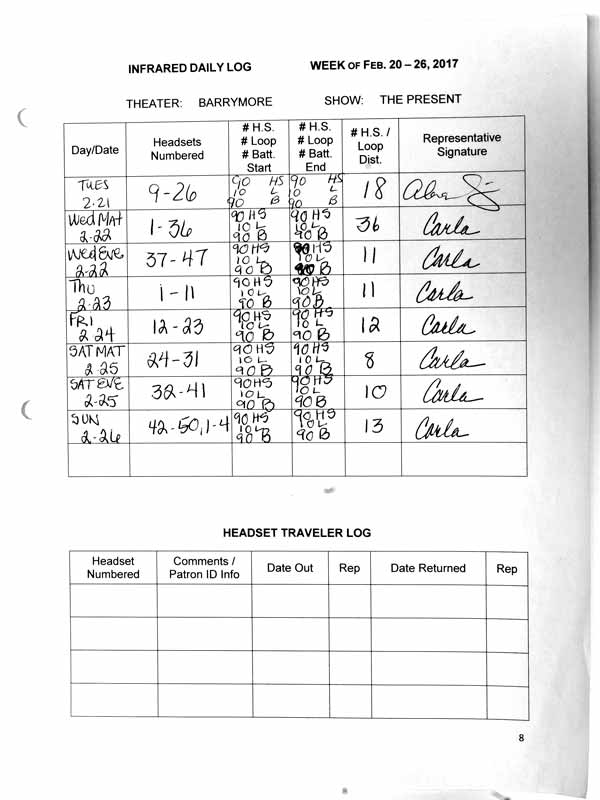 INFRARED DAILY LOG WEEK OF FEB. 20 – 26, 2017
THEATER: BARRYMORE SHOW: THE PRESENT
Day/Date Headsets Numbered # H.S. # Loop # Batt. Start # H.S. # Loop # Batt. End # H.S. / Loop Dist. Representative Signature
TUES 2.21 9-26 90 HS 10 L 90 B 90 HS 10 L 90 B 18
Wed MAT 2-22 1-36 90 HS 10 L 90 B 90 HS 10 L 90 B 36 Carla
Wed EVE 2-22 37-47 90 HS 10 L 90 B 90 HS 10 L 90 B 11 Carla
Thu 2-23 1-11 90 HS 10 L 90 B 90 HS 10 L 90 B 11 Carla
FRI 2 24 12-23 90 HS 10 L 90 B 90 HS 10 L 90 B 12 Carla
SAT MAT 2-25 24-31 90 HS 10 L 90 B 90 HS 10 L 90 B 8 Carla
SAT EVE 2-25 32-41 90 HS 10 L 90 B 90 HS 10 L 90 B 10 Carla
SUN 2-26 42-50, 1-4 90 HS 10 L 90 B 90 HS 10 L 90 B 13 Carla
HEADSET TRAVELER LOG
Headset Numbered Comments / Patron ID Info Date Out Rep Date Returned Rep
8